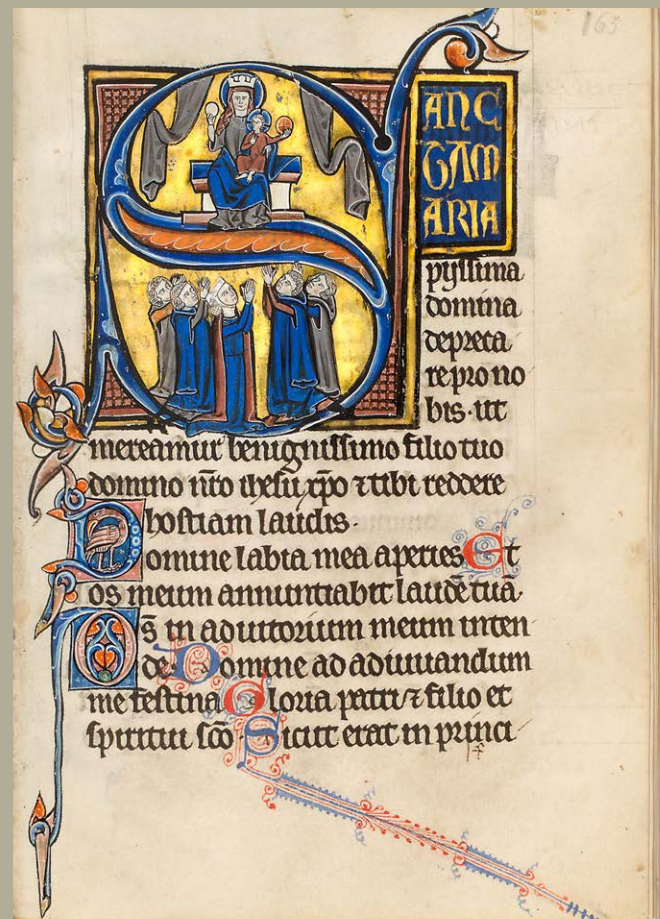 163
SANC
TAM
ARIA
pyissima
domina
depreca
re pro no
bis· ut
mereamur benignissimo filio tuo
domino nr̄o ihesu xp̄o ⁊ tibi reddere
hostiam laudis·
Domine labia mea aperies Et
os meum annuntiabit laudē tuā·
Ds̄ in adiutorium meum inten
de· Domine ad adiuuandum
me festina Gloria patri ⁊ filio et
spiritui sc̄o Sicut erat in princi